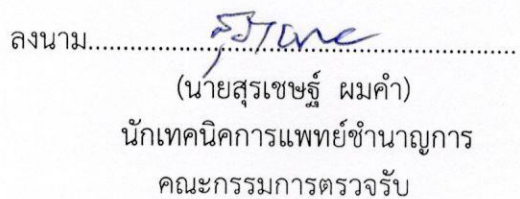 ลงนาม......................................................................
(นายสุรเชษฐ์ ผมคำ)
นักเทคนิคการแพทย์ชำนาญการ
คณะกรรมการตรวจรับ